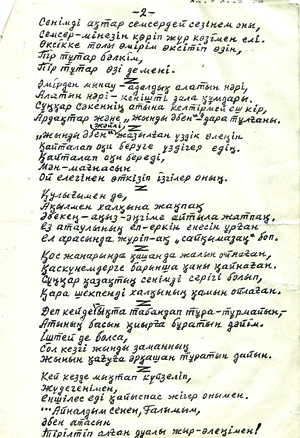 -2-
Сенімді ақтар семсердей сезінем оны,
Семсер-мінезін көріп жүр көзімен елі.
Өксікке толы өмірім өксітіп өзін,
Пір тұтар бәлкім,
Пір тұтар өзі демені.
Өмірден мынау - әділдік алатын нәрі,
Алатын нәрі - кеңішті дала құмдары.
Сұңқар Сәкеннің атына келтірмей еш кір,
Ардақтар және „жынды Әбен" дара тұлғаны.
жайлы
„Жынды Әбен" жазылған үздік өлеңін
Қайталап оқи беруге үздігер едің.
Қайталап оқи береді,
Мән-мағнасын
Ой елегінен өткізіп ізгілер оның.
Құлығымен де,
Ақылмен халқына жақпақ
Әбекең-аңыз-әңгіме айтыла жатпақ.
Ез атаулының еп-еркін енесін ұрған
Ел арасында жүріп-ақ „сайқымазақ" боп.
Қос жанарында қашанда жалын ойнаған,
Қаскүнемдерге барынша қаны қайнаған.
Сұңқар қазақтың сенімді серігі болып,
Қара шекпенді халқының қамын ойлаған.
Деп кейде бұқта табандап тұра-тұрмайын,-
Атының басын қиырға бұратын дәйім.
Іштей де болса,
Сол кезгі жынды заманның
Жынын қағуға әрқашан тұратын дайын.
Кей кезде мықтап күйзеліп,
Жүдегенімен,
Еңшілес еді қайыспас жігер онымен.
... Айналдым сенен, Ғалымым,
Әбен атасын
Тірілтіп алған дуалы жыр-өлеңімен!